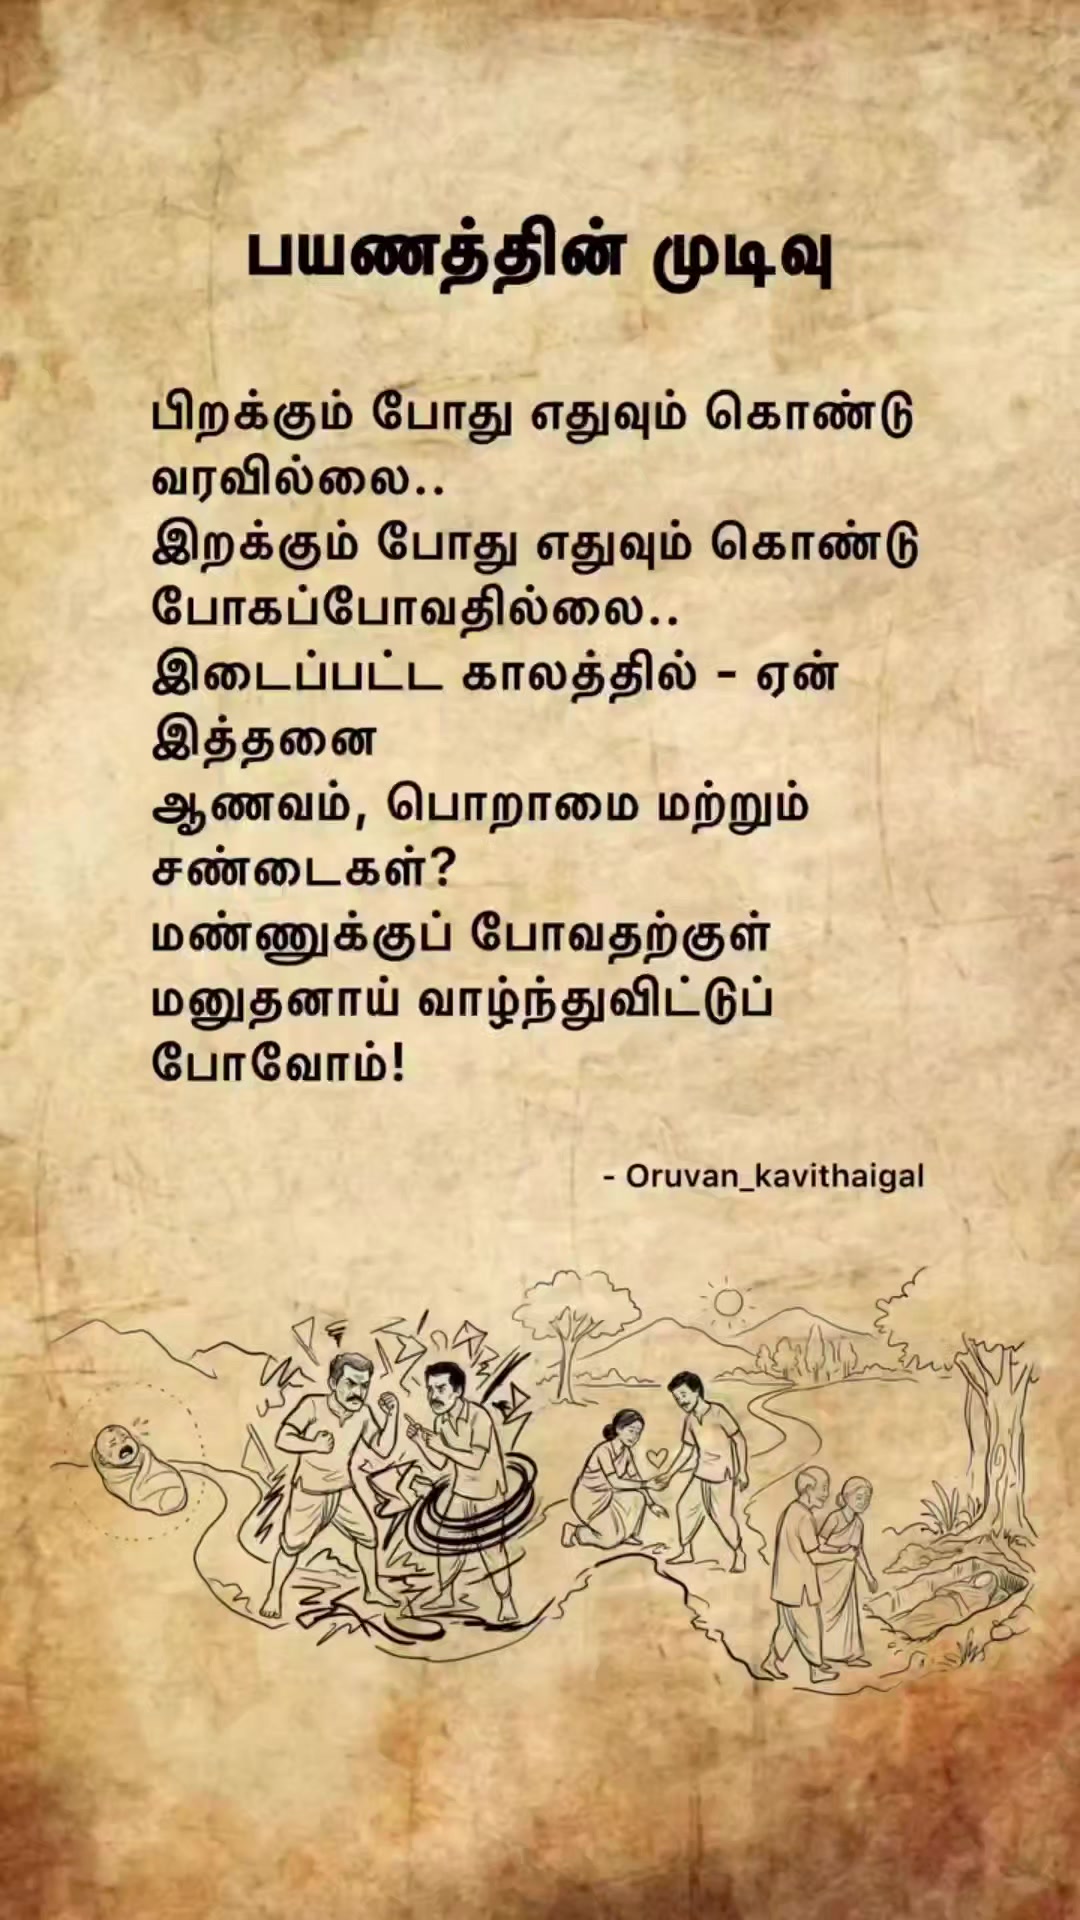 பயணத்தின் முடிவு
பிறக்கும் போது எதுவும் கொண்டு
வரவில்லை..
இறக்கும் போது எதுவும் கொண்டு
போகப்போவதில்லை..
இடைப்பட்ட காலத்தில் - ஏன்
இத்தனை
ஆணவம், பொறாமை மற்றும்
சண்டைகள்?
மண்ணுக்குப் போவதற்குள்
மனுதனாய் வாழ்ந்துவிட்டுப்
போவோம்!
- Oruvan_kavithaigal